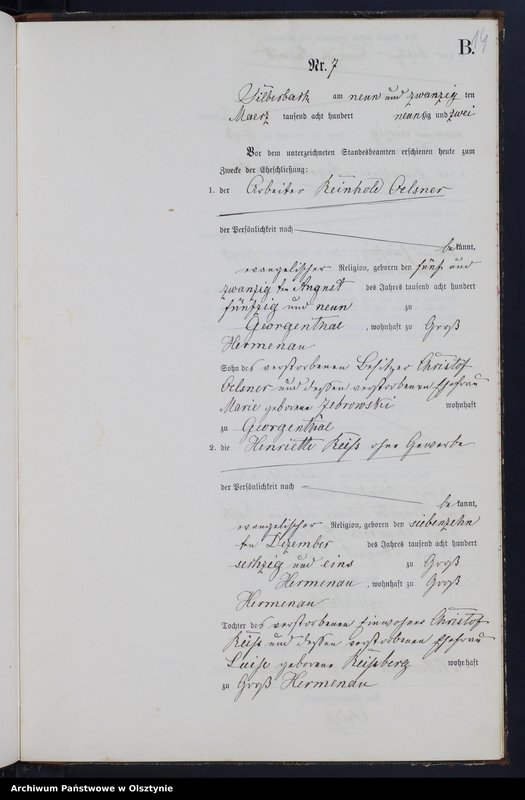 B.
14
Nr. 7
Silberbach am neun und zwanzig ten
Maerz tausend acht hundert neunzig und zwei
Vor dem unterzeichneten Standesbeamten erschienen heute zum
Zwecke der Eheschließung:
1. der Arbeiter Reinhold Oelsner
der Persönlichkeit nach
bekannt,
evangelischer Religion, geboren den fünf und
zwanzig ten August des Jahres tausend acht hundert
fünfzig und neun zu
Georgenthal, wohnhaft zu Groß
Hermenau
Sohn des verstorbenen Besitzer Christof
Oelsner und dessen verstorbenen Ehefrau
Marie geborene Zebrowski wohnhaft
zu Georgenthal
2. die Henriette Reiß ohne Gewerbe
der Persönlichkeit nach
bekannt,
evangelischer Religion, geboren den siebenzehn
ten Dezember des Jahres tausend acht hundert
sechzig und eins zu Groß
Hermenau, wohnhaft zu Groß
Hermenau
Tochter des verstorbenen Einwohner Christof
Reiß und dessen verstorbenen Ehefrau
Luise geborene Reiseberg wohnhaft
zu Groß Hermenau
Archiwum Państwowe w Olsztynie